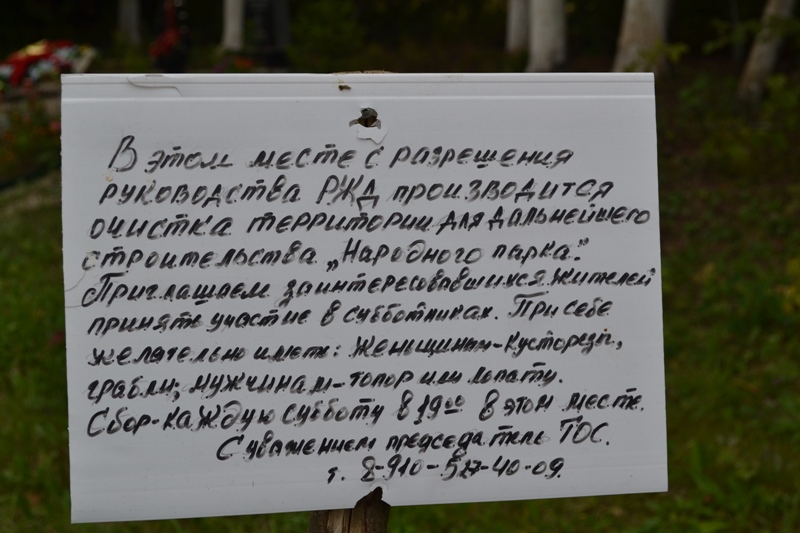 В этом месте с разрешения
руководства РЖД производится
очистка территории для дальнейшего
строительства „Народного парка".
Приглашаем заинтересовавшихся жителей
принять участие в субботниках. При себе
желательно иметь: женщинам-кусторезы,
грабли; мужчинам-топор или лопату.
Сбор-каждую субботу в 19⁰⁰ в этом месте.
С уважением председатель ТОС.
т. 8-910-527-40-09.